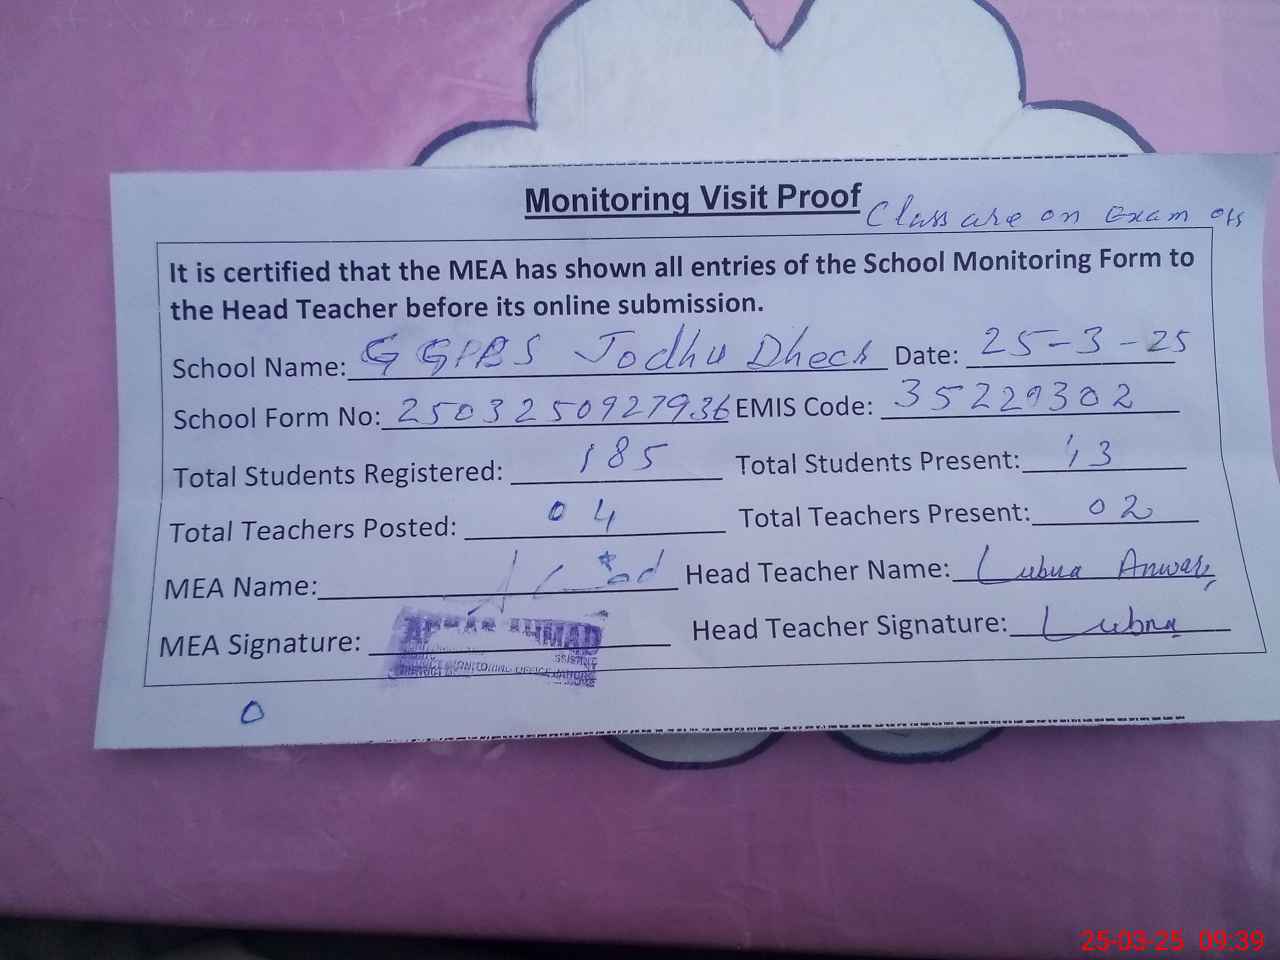 Monitoring Visit Proof
Class are on Exam off
It is certified that the MEA has shown all entries of the School Monitoring Form to
the Head Teacher before its online submission.
School Name: G GPBS Jodhu Dheer Date: 25-3-25
School Form No: 2503250927936 EMIS Code: 35229302
Total Students Registered: 185 Total Students Present: 13
Total Teachers Posted: 04 Total Teachers Present: 02
MEA Name: Head Teacher Name: Lubna Anwar
MEA Signature: AHMAD Head Teacher Signature: Lubna
DISTRICT MONITORING OFFICE LAHORE
25-03-25 09:39